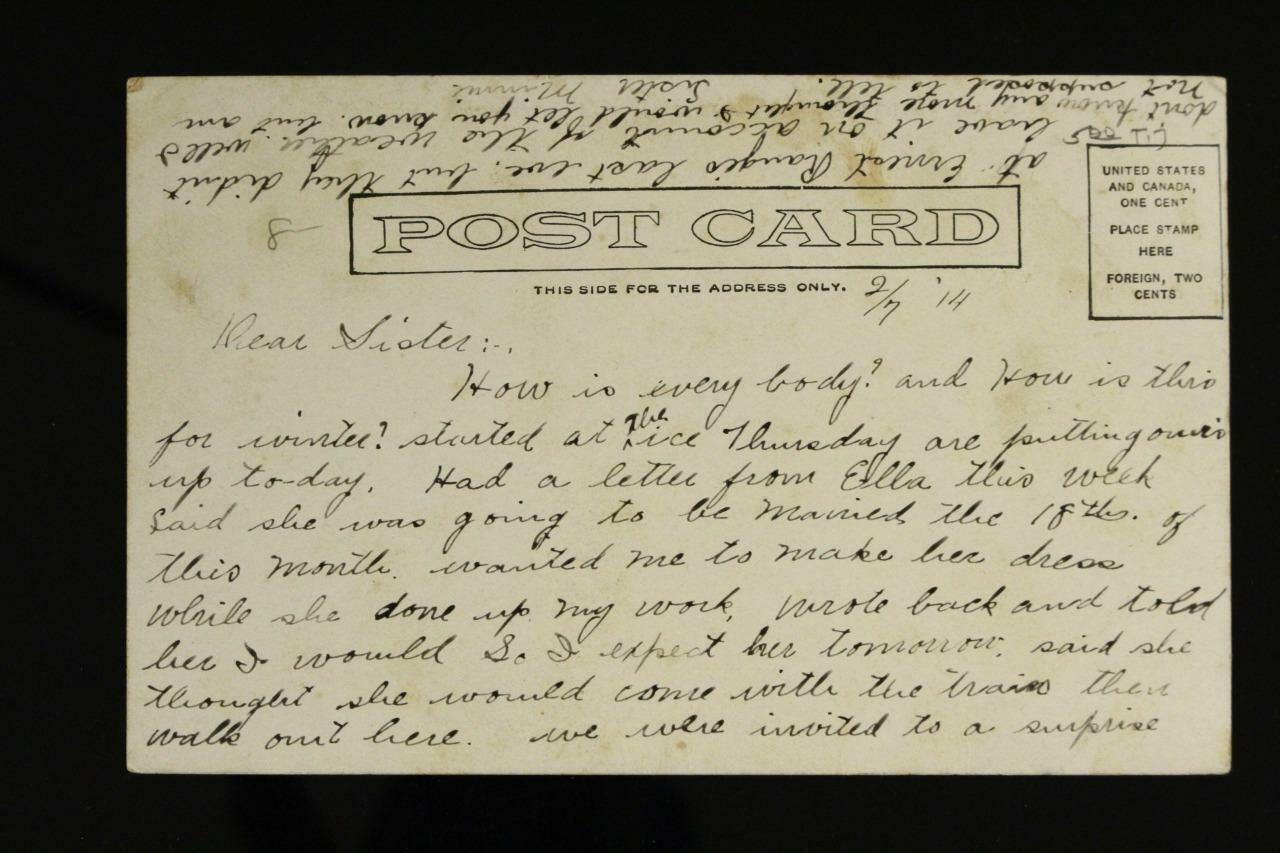 POST CARD
THIS SIDE FOR THE ADDRESS ONLY.
UNITED STATES
AND CANADA,
ONE CENT
PLACE STAMP
HERE
FOREIGN, TWO
CENTS
8
2/7 '14
Dear Sister:-.
How is every body? and How is this
for winter? started at the ice Thursday are putting ours
up to-day. Had a letter from Ella this week
said she was going to be Married the 18th. of
this month. wanted me to make her dress
while she done up my work, wrote back and told
her I would So I expect her tomorrow. said she
thought she would come with the train then
walk out here. we were invited to a surprise
at Ernest Range's last eve. but they didn't
have it on account of the weather. well I
don't know any more thought I would let you know. but am
not supposed to tell. Sister Minnie